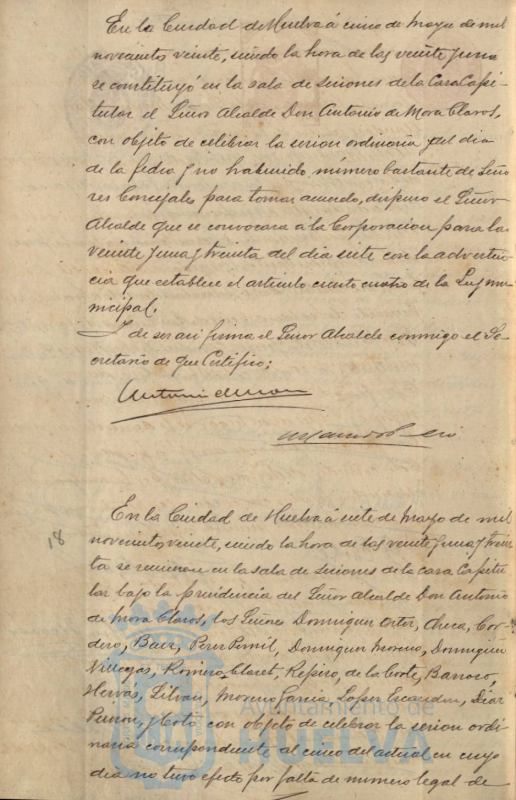 En la Ciudad de Huelva á cinco de Mayo de mil
novecientos veinte, siendo la hora de las veinte y una
se constituyó en la sala de sesiones de la Casa Capi-
tular el Señor Alcalde Don Antonio de Mora Claros,
con objeto de celebrar la sesion ordinaria del dia
de la fecha y no habiendo número bastante de Seño
res Concejales para tomar acuerdo, dispuso el Señor
Alcalde que se convocara á la Corporacion para las
veinte y una y treinta del dia siete con la adverten-
cia que establece el articulo ciento cuatro de la Ley mu-
nicipal.
Y de ser asi firma el Señor Alcalde conmigo el Se-
cretario de que Certifico;
Antonio de Mora
18
En la Ciudad de Huelva á siete de Mayo de mil
novecientos veinte, siendo la hora de las veinte y una y trein
ta se reunieron en la sala de sesiones de la casa Capitu
lar bajo la presidencia del Señor Alcalde Don Antonio
de Mora Claros, los Señores Dominguez Ortiz, Checa, Cor-
dero, Baez, Perez Pomil, Dominguez Moreno, Dominguez
Villegas, Romero, Claret, Repiso, de la Corte, Barroso,
Hervas, Silvan, Moreno Garcia, Lopez Escandon, Diaz
Punon, y Coto con objeto de celebrar la sesion ordi
naria correspondiente al cinco del actual en cuyo
dia no tuvo efecto por falta de numero legal de
Ayuntamiento de
HUELVA